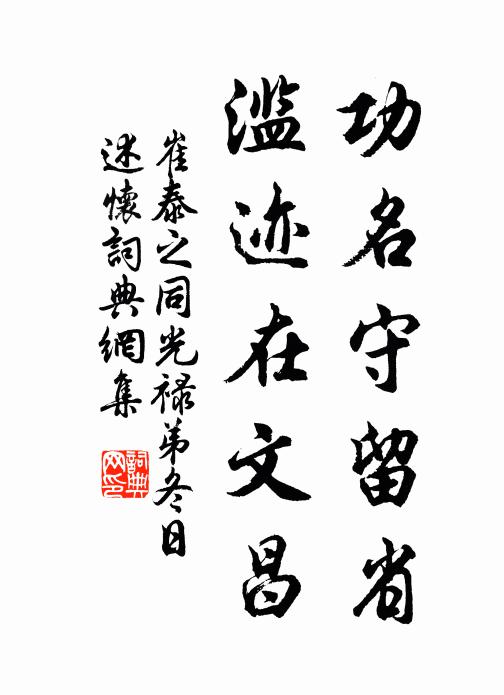 功名守留省
滥迹在文昌
崔泰之同光禄弟冬日
述懷詞典網集
詞典網印